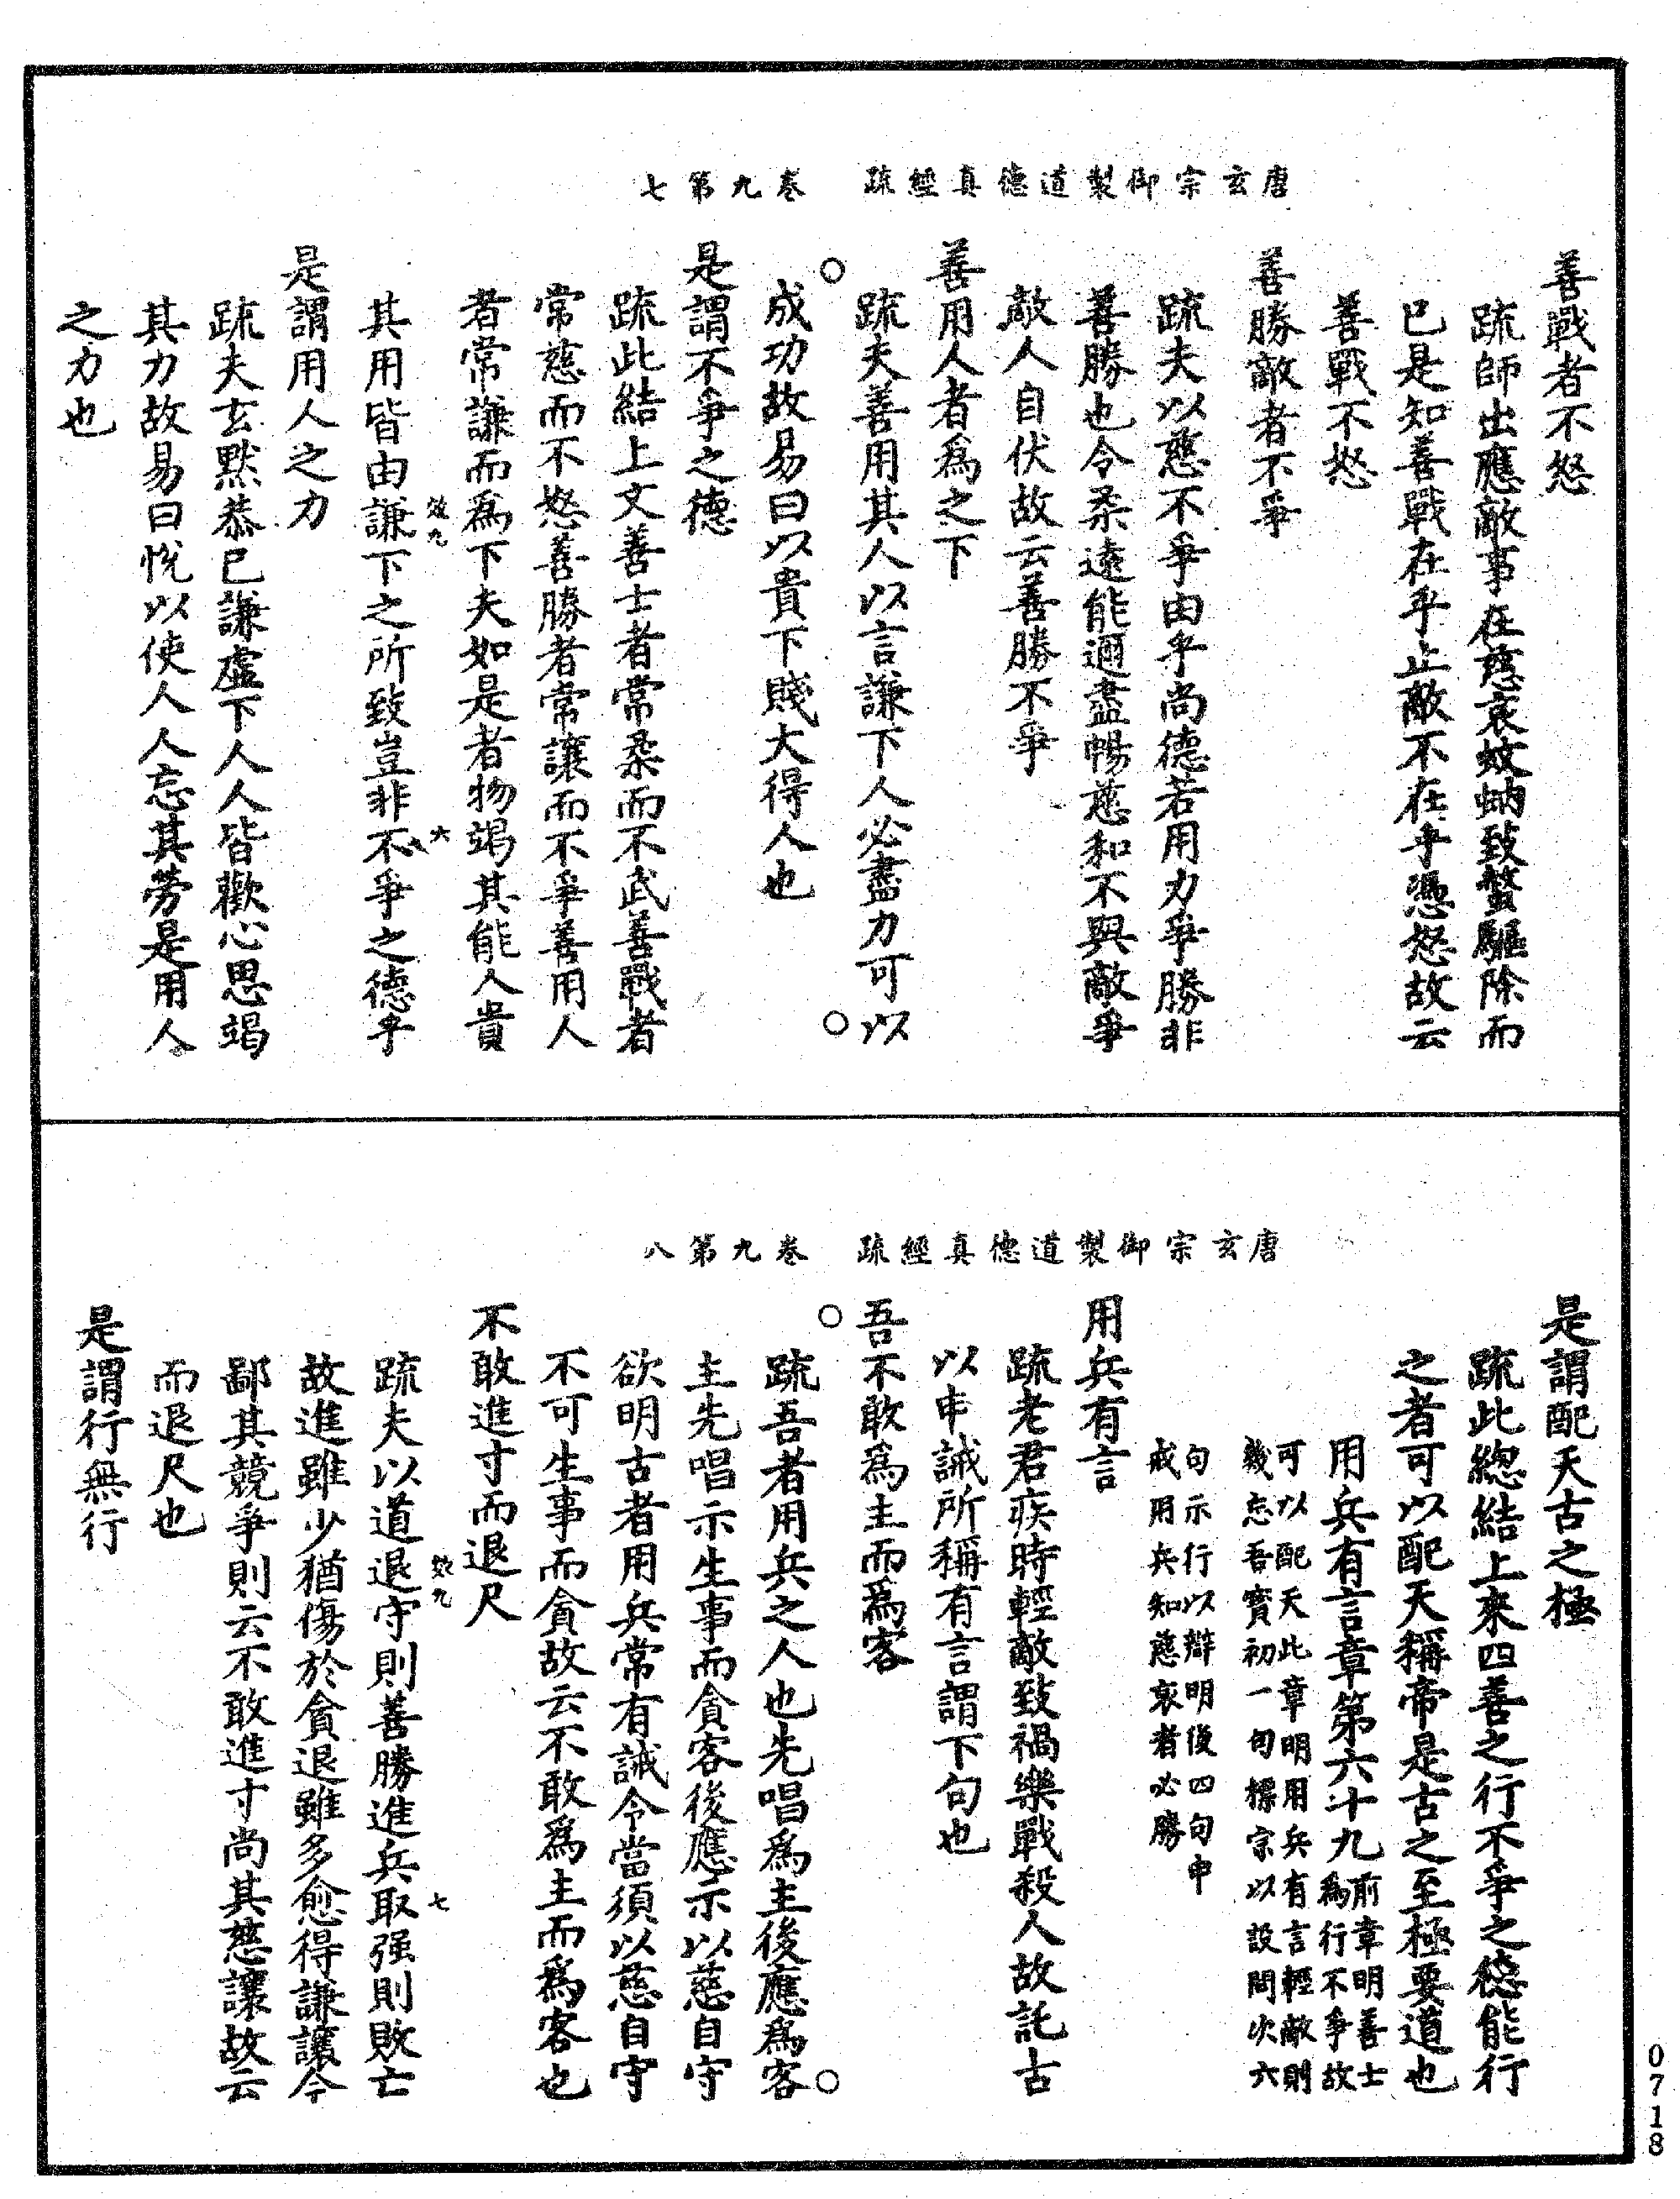 唐玄宗御製道德真經疏　卷九第七
善戰者不怒
疏師出應敵事在慈哀蚊蚋致螫驅除而
已是知善戰在乎止敵不在乎憑怒故云
善戰不怒
善勝敵者不爭
疏夫以慈不爭由乎尚德若用力爭勝非
善勝也令柔遠能邇盡暢慈和不與敵爭
敵人自伏故云善勝不爭
善用人者為之下
疏夫善用其人以言謙下人必盡力可以
成功故易曰以貴下賤大得人也
是謂不爭之德
疏此結上文善士者常柔而不武善戰者
常慈而不怒善勝者常讓而不爭善用人
者常謙而為下夫如是者物竭其能人貴
效九　六
其用皆由謙下之所致豈非不爭之德乎
是謂用人之力
疏夫玄默恭已謙虛下人人皆歡心思竭
其力故易曰悅以使人人忘其勞是用人
之力也
唐玄宗御製道德真經疏　卷九第八
是謂配天古之極
疏此總結上來四善之行不爭之德能行
之者可以配天稱帝是古之至極要道也
用兵有言章第六十九前章明善士
為行不爭故
可以配天此章明用兵有言輕敵則
幾忘吾寶初一句標宗以設問次六
句示行以辯明後四句申
戒用兵知慈哀者必勝
用兵有言
疏老君疾時輕敵致禍樂戰殺人故託古
以申誡所稱有言謂下句也
吾不敢為主而為客
疏吾者用兵之人也先唱為主後應為客
主先唱示生事而貪客後應示以慈自守
欲明古者用兵常有誡令當須以慈自守
不可生事而貪故云不敢為主而為客也
不敢進寸而退尺
效九　七
疏夫以道退守則善勝進兵取强則敗亡
故進雖少猶傷於貪退雖多愈得謙讓今
鄙其競爭則云不敢進寸尚其慈讓故云
而退尺也
是謂行無行
0718